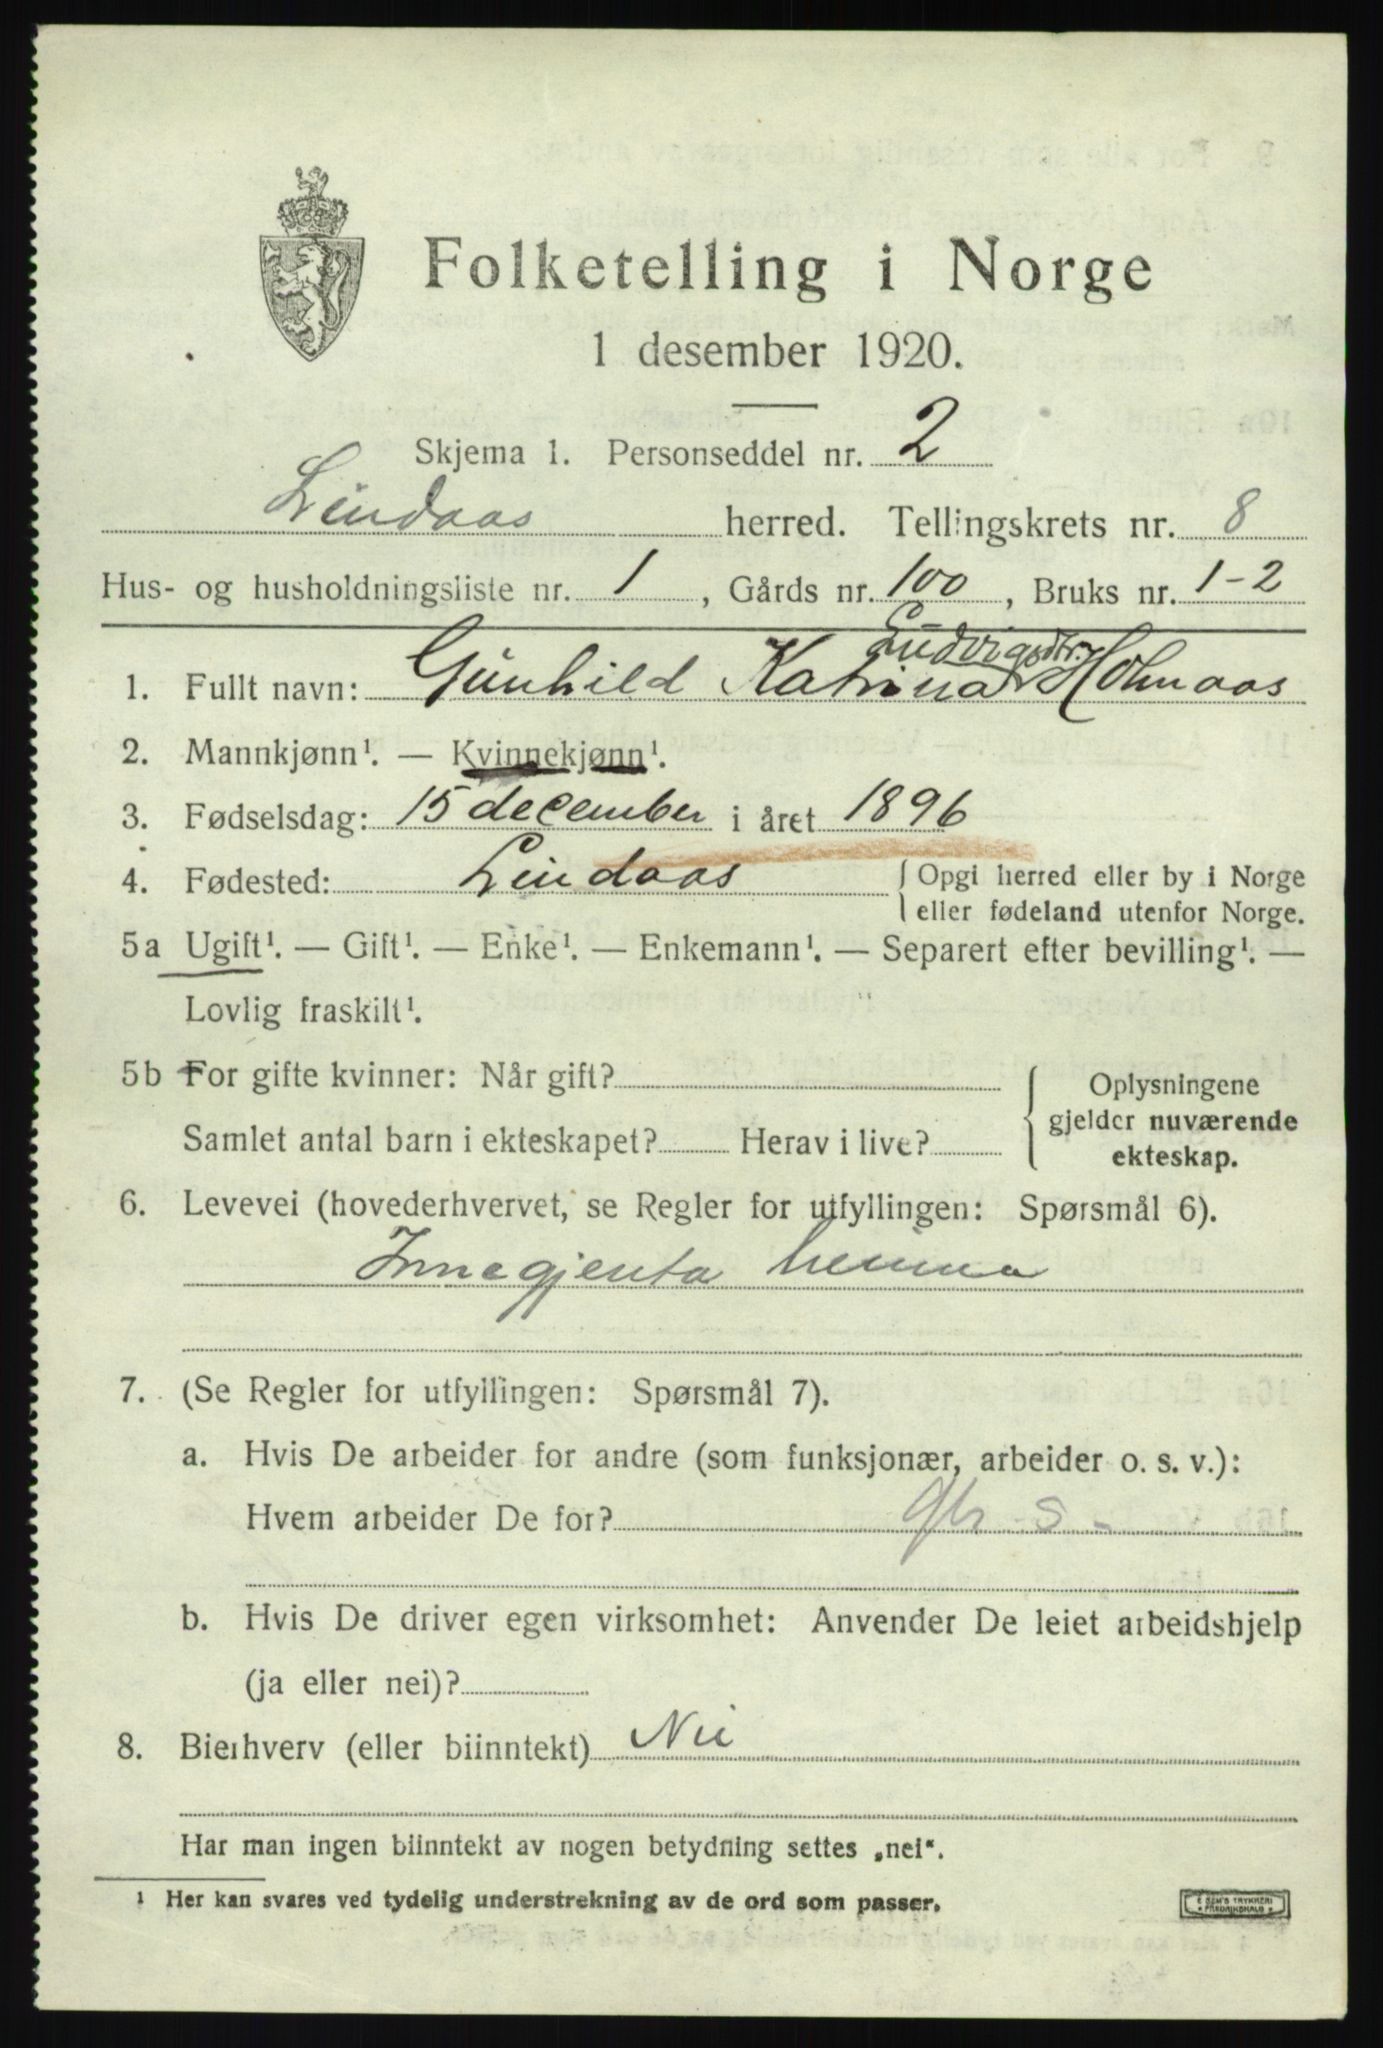 Folketelling i Norge
1 desember 1920.
Skjema 1. Personseddel nr. 2
Lindaas herred. Tellingskrets nr. 8
Hus- og husholdningsliste nr. 1, Gårds nr. 100, Bruks nr. 1-2
Ludvigsdtr.
1. Fullt navn: Gunhild Katrina Holmaas
2. Mannkjønn¹. — Kvinnekjønn¹.
3. Fødselsdag: 15 december i året 1896
4. Fødested: Lindaas { Opgi herred eller by i Norge
eller fødeland utenfor Norge.
5a Ugift¹. — Gift¹. — Enke¹. — Enkemann¹. — Separert efter bevilling¹. —
Lovlig fraskilt¹.
5b For gifte kvinner: Når gift? { Oplysningene
gjelder nuværende
Samlet antal barn i ekteskapet? Herav i live?
ekteskap.
6. Levevei (hovederhvervet, se Regler for utfyllingen: Spørsmål 6).
Innegjenta heima
7. (Se Regler for utfyllingen: Spørsmål 7).
a. Hvis De arbeider for andre (som funksjonær, arbeider o. s. v.):
Hvem arbeider De for?
b. Hvis De driver egen virksomhet: Anvender De leiet arbeidshjelp
(ja eller nei)?
8. Bierhverv (eller biinntekt) Nei
Har man ingen biinntekt av nogen betydning settes „nei“.
¹ Her kan svares ved tydelig understrekning av de ord som passer.
E SEM'S TRYKKERI
FREDRIKSHALD